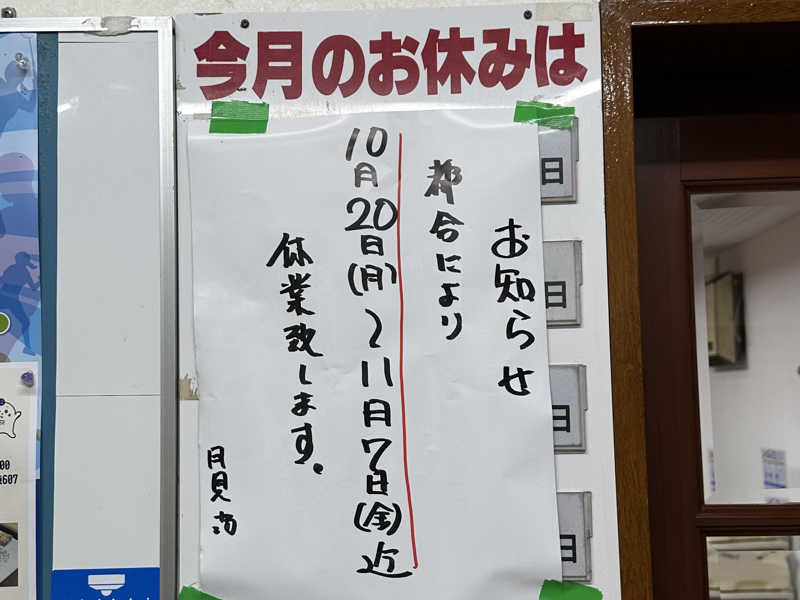 今月のお休みは
お知らせ
都合により
10月20日(月)〜11月7日(金)迄
休業致します。
月見
日
日
日
日
00
607